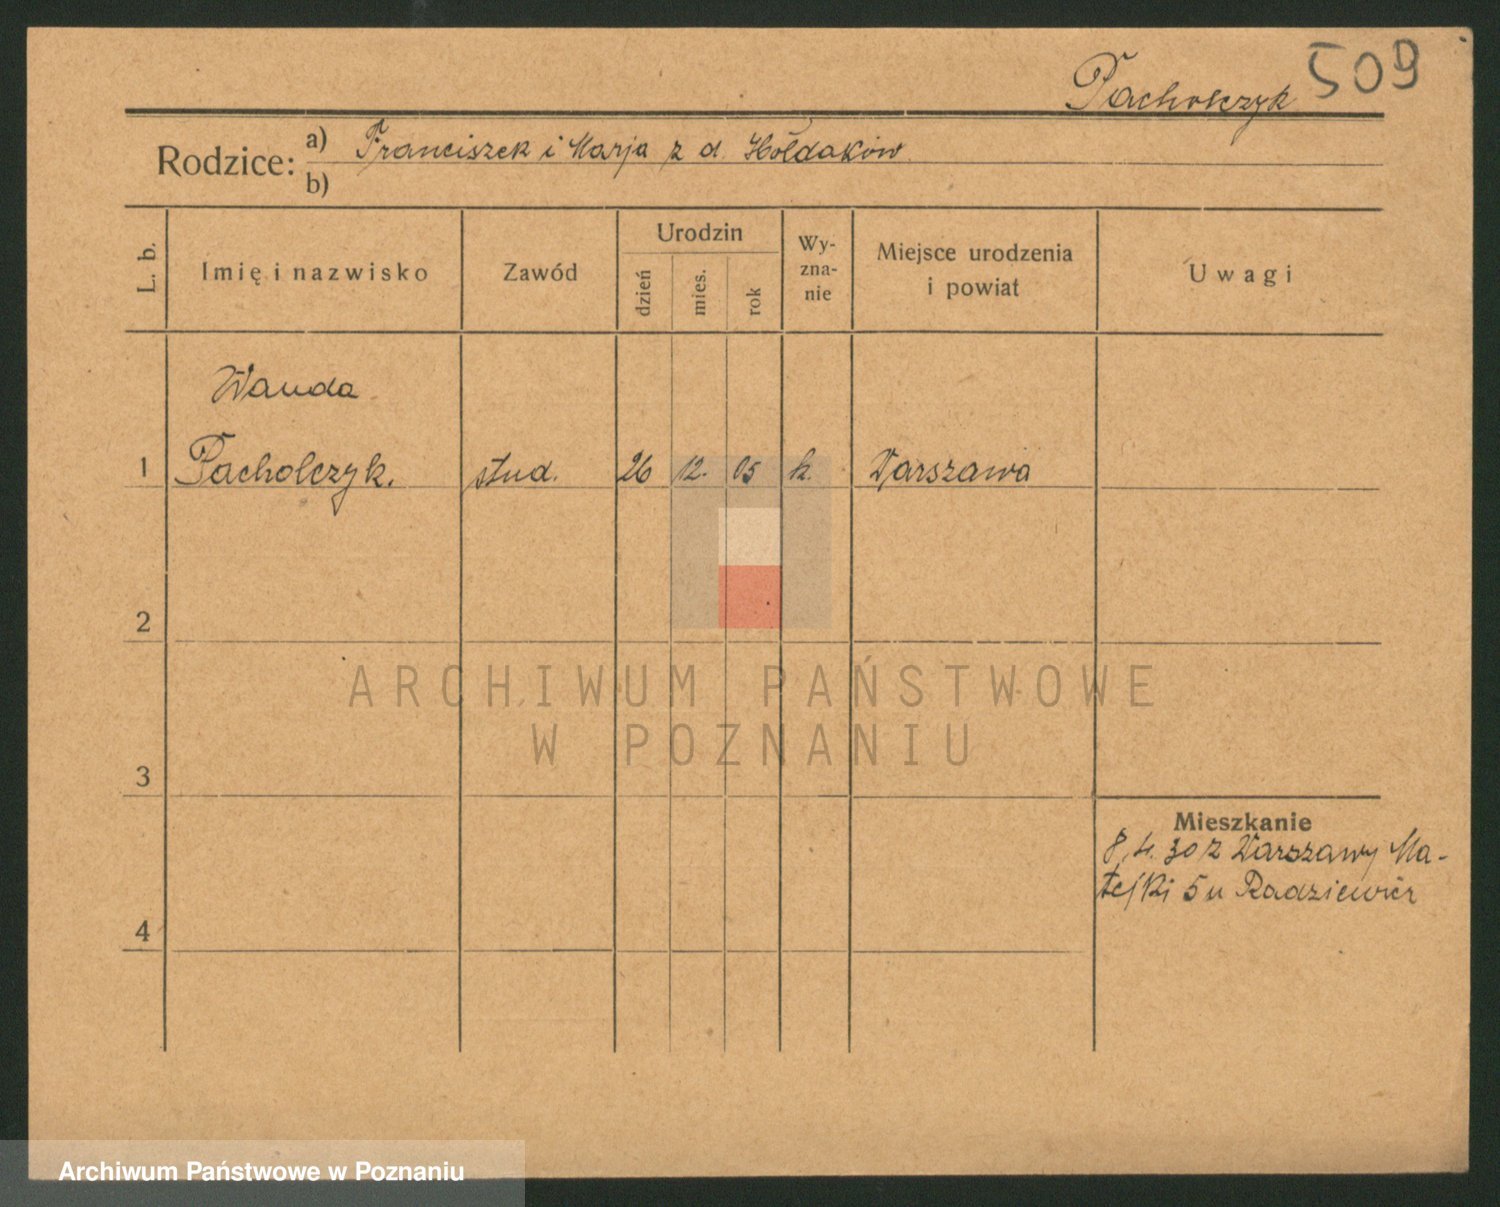 Pacholczyk 509
Rodzice: a) Franciszek i Marja z d. Hołdaków
b)
L. b.
Imię i nazwisko
Zawód
Urodzin
dzień
mies.
rok
Wy-
zna-
nie
Miejsce urodzenia
i powiat
Uwagi
Wanda
1 Pacholczyk. stud. 26 12. 05 k. Warszawa
2
ARCHIWUM PAŃSTWOWE
W POZNANIU
3
Mieszkanie
8.4.30 z Warszawy Ma-
tejki 5 u Radziewicz
4
Archiwum Państwowe w Poznaniu